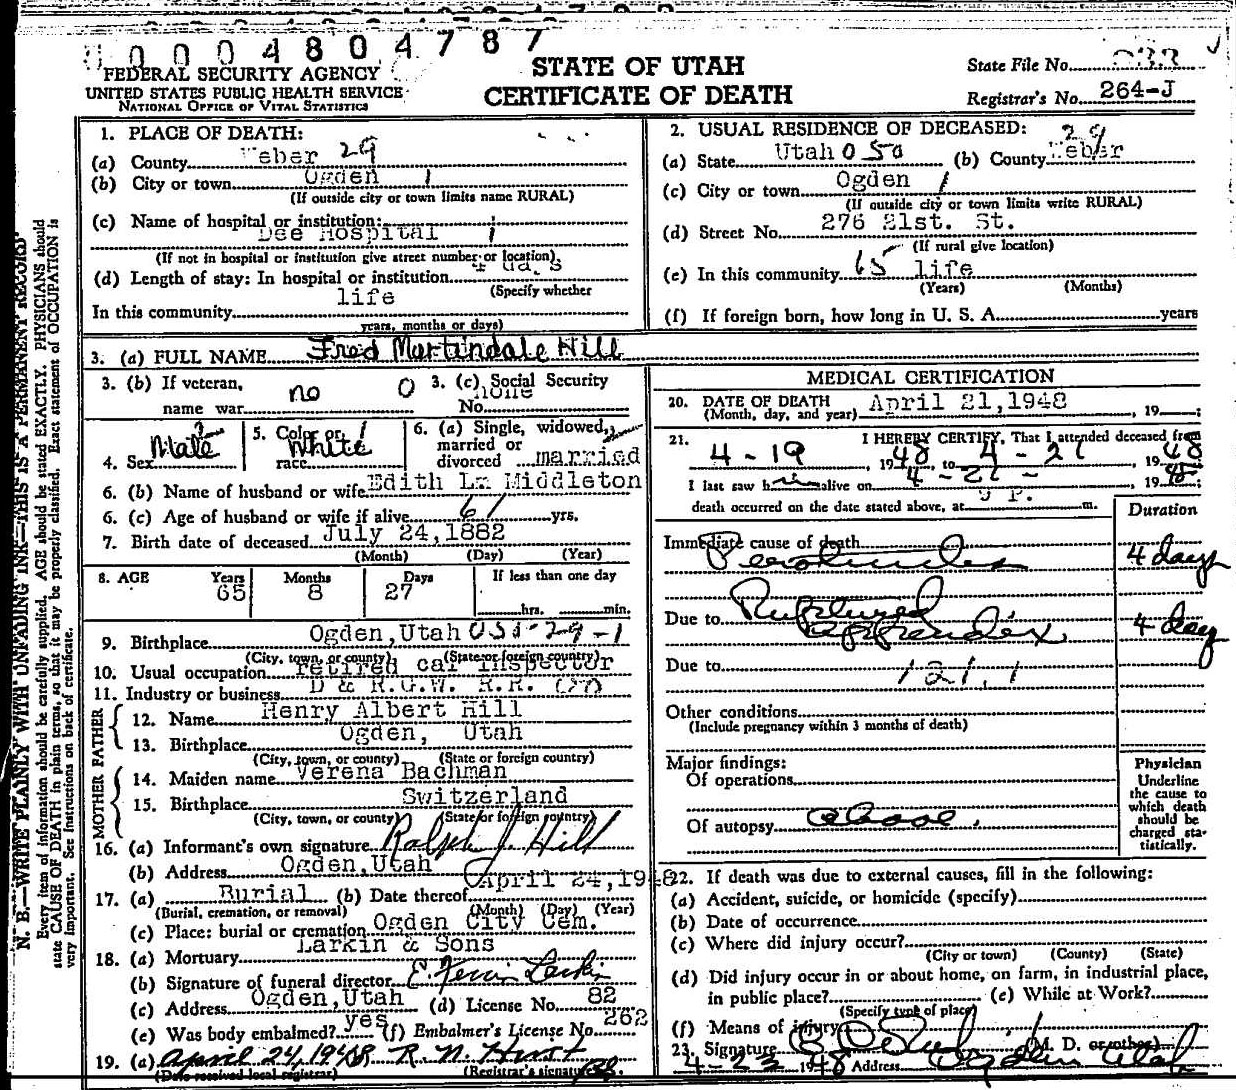 0 0 0 4 8 0 4 7 8 7
FEDERAL SECURITY AGENCY
UNITED STATES PUBLIC HEALTH SERVICE
NATIONAL OFFICE OF VITAL STATISTICS
STATE OF UTAH
CERTIFICATE OF DEATH
State File No.
Registrar's No. 264-J
N. B.—WRITE PLAINLY WITH UNFADING INK—THIS IS A PERMANENT RECORD
Every item of information should be carefully supplied. AGE should be stated EXACTLY. PHYSICIANS should
state CAUSE OF DEATH in plain terms, so that it may be properly classified. Exact statement of OCCUPATION is
very important. See Instructions on back of certificate.
1. PLACE OF DEATH:
(a) County Weber 29
(b) City or town Ogden 1
(If outside city or town limits name RURAL)
(c) Name of hospital or institution:
Dee Hospital 1
(If not in hospital or institution give street number or location)
(d) Length of stay: In hospital or institution 4 da.s
(Specify whether
In this community life
years, months or days)
2. USUAL RESIDENCE OF DECEASED:
(a) State Utah 050 (b) County Weber 29
(c) City or town Ogden 1
(If outside city or town limits write RURAL)
(d) Street No. 276 21st. St.
(If rural give location)
(e) In this community 65 life
(Years) (Months)
(f) If foreign born, how long in U. S. A. years
3. (a) FULL NAME Fred Martindale Hill
3. (b) If veteran,
name war no 0
3. (c) Social Security
No. none
4. Sex Male
5. Color or
race White
6. (a) Single, widowed,
married or
divorced married
6. (b) Name of husband or wife Edith Middleton
6. (c) Age of husband or wife if alive 61 yrs.
7. Birth date of deceased July 24,1882
(Month) (Day) (Year)
8. AGE Years Months Days If less than one day
65 8 27 hrs. min.
9. Birthplace Ogden,Utah 051-29-1
(City, town, or county) (State or foreign country)
10. Usual occupation retired car inspector
11. Industry or business D & R.G.W. R.R.
FATHER
12. Name Henry Albert Hill
13. Birthplace Ogden, Utah
(City, town, or county) (State or foreign country)
MOTHER
14. Maiden name Verena Bachman
15. Birthplace Switzerland
(City, town, or county) (State or foreign country)
16. (a) Informant's own signature Ralph J. Hill
(b) Address Ogden,Utah
17. (a) Burial (b) Date thereof April 24,1948
(Burial, cremation, or removal) (Month) (Day) (Year)
(c) Place: burial or cremation Ogden City Cem.
18. (a) Mortuary Larkin & Sons
(b) Signature of funeral director E. Ferrin Larkin
(c) Address Ogden,Utah (d) License No. 82
(e) Was body embalmed? yes (f) Embalmer's License No. 262
19. (a) April 24 1948 R. N. Hirst
(Date received local registrar) (Registrar's signature)
MEDICAL CERTIFICATION
20. DATE OF DEATH
(Month, day, and year) April 21,1948, 19
21. I HEREBY CERTIFY, That I attended deceased from
4-19, 1948, to 4-21, 1948
I last saw him alive on 4-21-, 1948
death occurred on the date stated above, at P. m.
Duration
Immediate cause of death
Peritonitis 4 days
Due to Ruptured
Appendix 4 day
Due to 121.1
Other conditions
(Include pregnancy within 3 months of death)
Major findings:
Of operations
Of autopsy above.
Physician
Underline
the cause to
which death
should be
charged sta-
tistically.
22. If death was due to external causes, fill in the following:
(a) Accident, suicide, or homicide (specify)
(b) Date of occurrence
(c) Where did injury occur?
(City or town) (County) (State)
(d) Did injury occur in or about home, on farm, in industrial place,
in public place? (e) While at Work?
(Specify type of place)
(f) Means of injury
23. Signature (M. D. or other)
4-23 1948 Address Ogden Utah